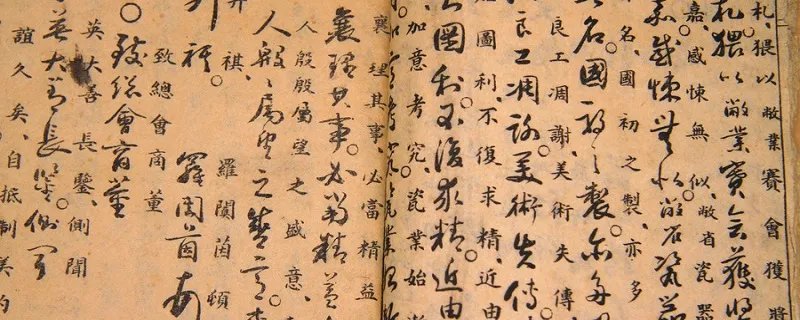 札猥以敝業賽會獲獎
札猥以敝業賽會獲獎
嘉感悚無似敝省瓷器
嘉感悚無似敝省瓷器
名國初之製亦多
名國初之製亦多
良工凋謝美術失傳
良工凋謝美術失傳
圖利不復求精近由
圖利不復求精近由
加意考究瓷業始
襄理其事必當精益
襄理其事必當精益
人殷殷屬望之盛意
人殷殷屬望之盛意
祺 羅閩茵頓
祺 羅閩茵頓
致總會商董
致總會商董
英大善長鑒側聞
英大善長鑒側聞
誼久矣自抵制美約